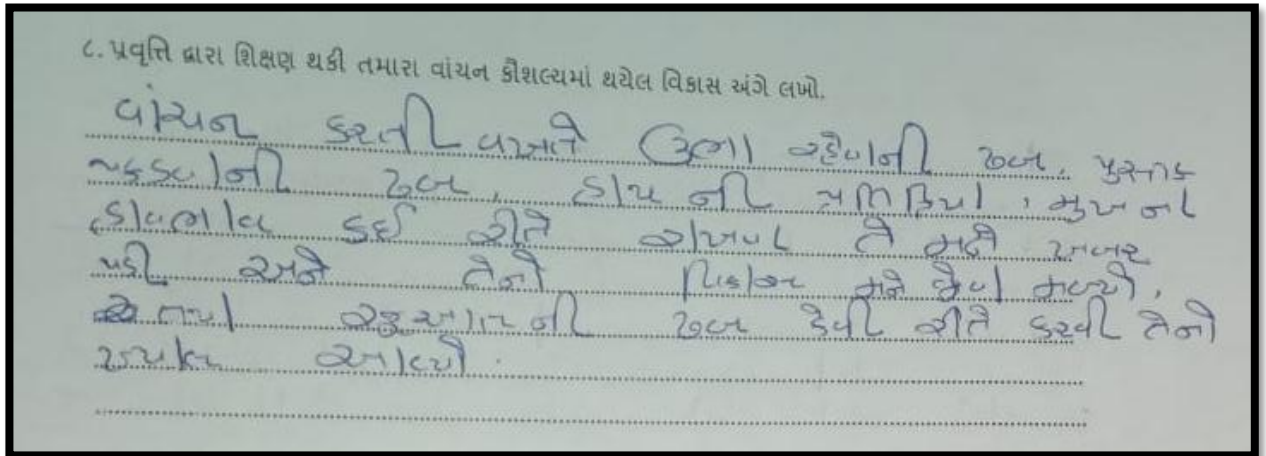 ૮. પ્રવૃત્તિ દ્વારા શિક્ષણ થકી તમારા વાંચન કૌશલ્યમાં થયેલ વિકાસ અંગે લખો.
વાંચન કરતી વખતે ઉભા રહેવાની ઢબ, પુસ્તક
પકડવાની ઢબ, હાથ ની પ્રતિક્રિયા, મુખ ના
હાવભાવ કઈ રીતે રાખવા તે મને ખબર
પડી અને તેનો વિકાસ મને જોવા મળ્યો,
તથા રજુઆત ની ઢબ કેવી રીતે કરવી તેનો
ખ્યાલ આવ્યો.